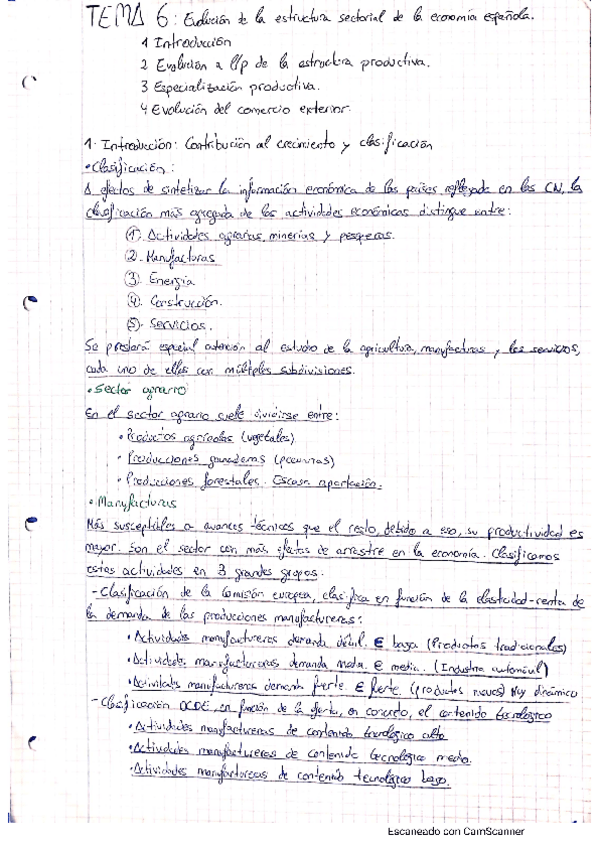 TEMA 6: Evolución de la estructura sectorial de la economía española.
1 Introducción
2 Evolución a l/p de la estructura productiva.
3 Especialización productiva.
4 Evolución del comercio exterior.
1. Introducción: Contribución al crecimiento y clasificación
• Clasificación:
A efectos de sintetizar la información económica de los países reflejada en las CN, la
clasificación más agregada de las actividades económicas distingue entre:
①. Actividades agrarias, minerías y pesqueras.
②. Manufacturas
③. Energía
④. Construcción.
⑤. Servicios.
Se prestará especial atención al estudio de la agricultura, manufacturas y los servicios,
cada uno de ellos con múltiples subdivisiones.
• Sector agrario
En el sector agrario suele dividirse entre:
• Productos agrícolas (vegetales)
• Producciones ganaderas (pecuarias)
• Producciones forestales. Escasa aportación.
• Manufacturas
Más susceptibles a avances técnicos que el resto, debido a eso, su productividad es
mayor. Son el sector con más efectos de arrastre en la economía. Clasificamos
estas actividades en 3 grandes grupos:
- Clasificación de la Comisión europea, clasifica en función de la elasticidad-renta de
la demanda de las producciones manufactureras:
• Actividades manufactureras demanda débil. E baja (Productos tradicionales)
• Actividades manufactureras demanda media. E media. (Industria automóvil)
• Actividades manufactureras demanda fuerte. E fuerte. (productos nuevos) Muy dinámico
- Clasificación OCDE, en función de la oferta, en concreto, el contenido tecnológico
• Actividades manufactureras de contenido tecnológico alto
• Actividades manufactureras de contenido tecnológico medio.
• Actividades manufactureras de contenido tecnológico bajo.
Escaneado con CamScanner